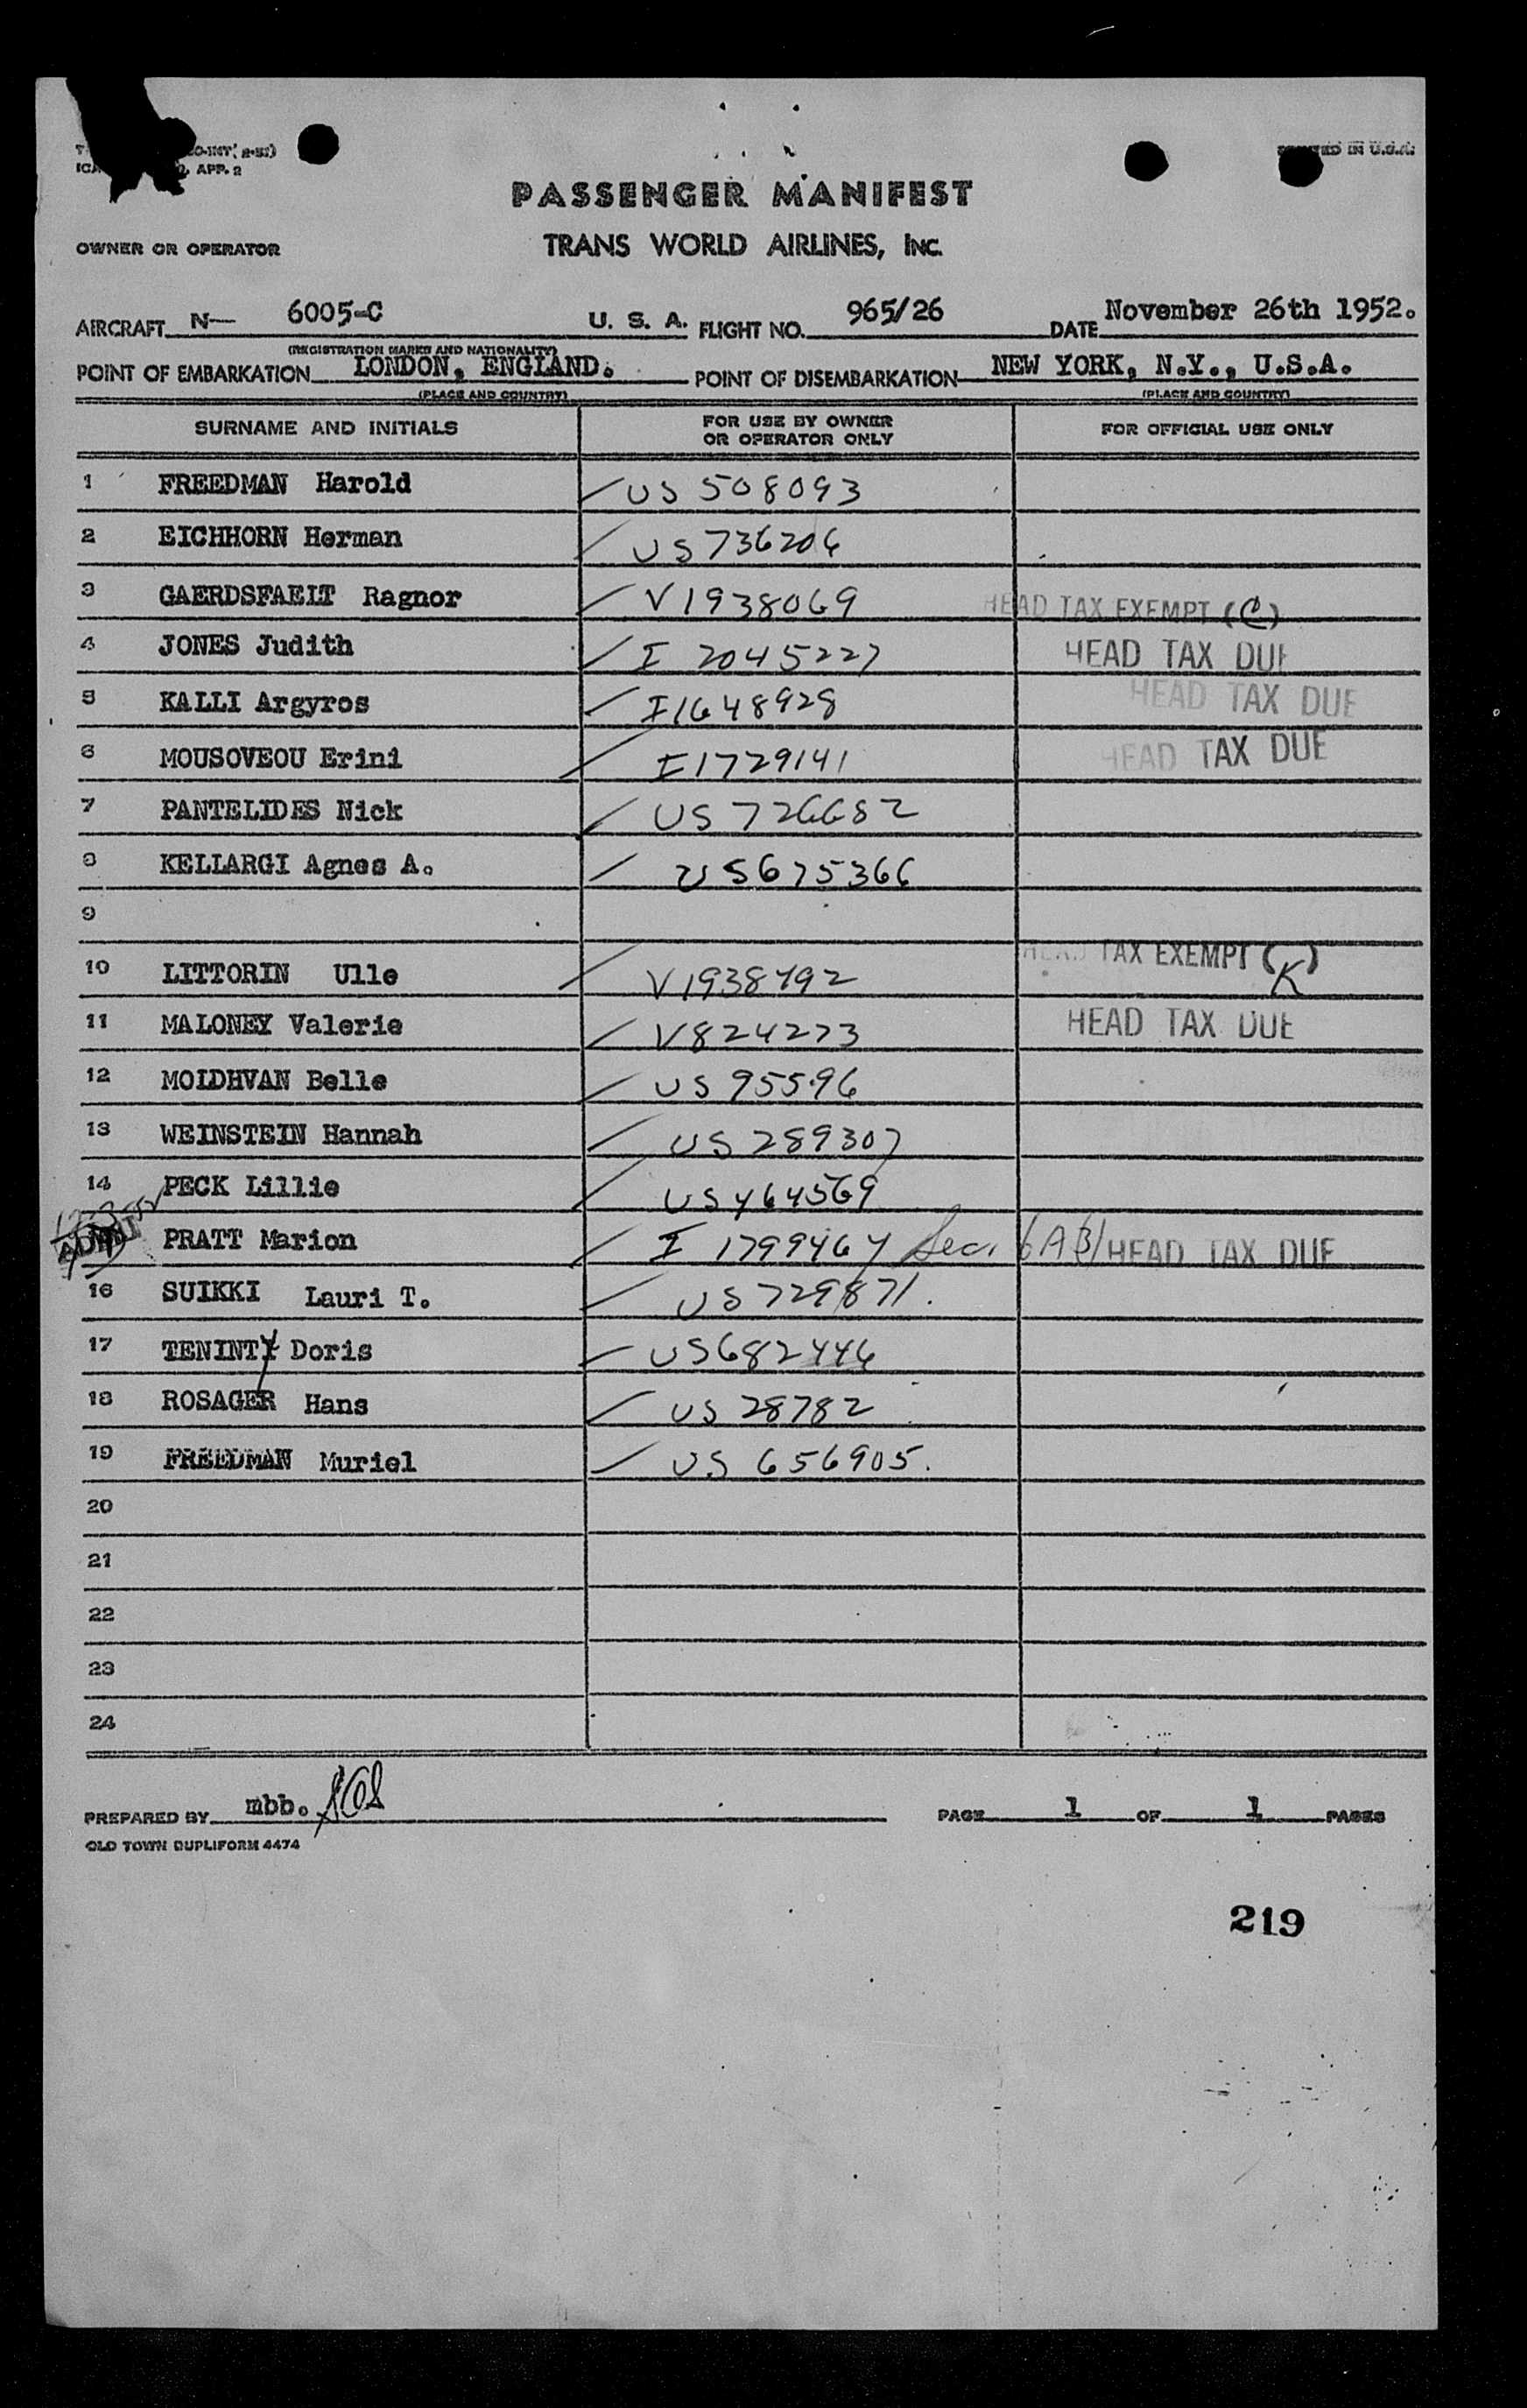 O-INT( 2-51)
APP. 2
IN U.S.A.
PASSENGER MANIFEST
OWNER OR OPERATOR
TRANS WORLD AIRLINES, INC.
AIRCRAFT N— 6005-C U. S. A. FLIGHT NO. 965/26 DATE November 26th 1952.
(REGISTRATION MARKS AND NATIONALITY)
POINT OF EMBARKATION LONDON, ENGLAND. POINT OF DISEMBARKATION NEW YORK, N.Y., U.S.A.
(PLACE AND COUNTRY) (PLACE AND COUNTRY)
SURNAME AND INITIALS FOR USE BY OWNER OR OPERATOR ONLY FOR OFFICIAL USE ONLY
1 FREEDMAN Harold US 508093
2 EICHHORN Herman US 736206
3 GAERDSFAELT Ragnor V1938069 HEAD TAX EXEMPT (C)
4 JONES Judith I 2045227 HEAD TAX DUE
5 KALLI Argyros I1648928 HEAD TAX DUE
6 MOUSOVEOU Erini I1729141 HEAD TAX DUE
7 PANTELIDES Nick US 726682
8 KELLARGI Agnes A. US675366
9
10 LITTORIN Ulle V1938492 HEAD TAX EXEMPT (K)
11 MALONEY Valerie V824273 HEAD TAX DUE
12 MOLDHVAN Belle US 95596
13 WEINSTEIN Hannah US 289307
14 PECK Lillie US464569
PRATT Marion I 1799464 Sec. 6 A(3) HEAD TAX DUE
16 SUIKKI Lauri T. US729871.
17 TENINTY Doris US682446
18 ROSAGER Hans US 28782
19 FREEDMAN Muriel US 656905.
20
21
22
23
24
PREPARED BY mbb. PAGE 1 OF 1 PAGES
OLD TOWN DUPLIFORM 4474
219